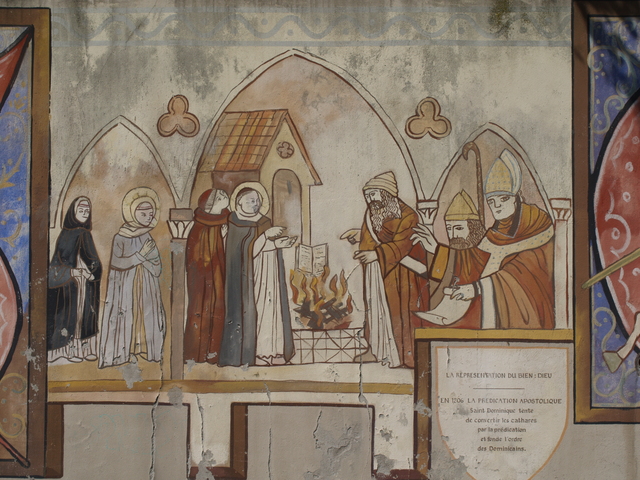 LA REPRESENTATION DU BIEN : DIEU
EN 1206 LA PREDICATION APOSTOLIQUE
Saint Dominique tente
de convertir les cathares
par la prédication
et fonde l'ordre
des Dominicains.